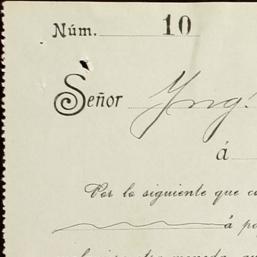 Núm. 10
Señor Yng.
á
Por lo siguiente que
á